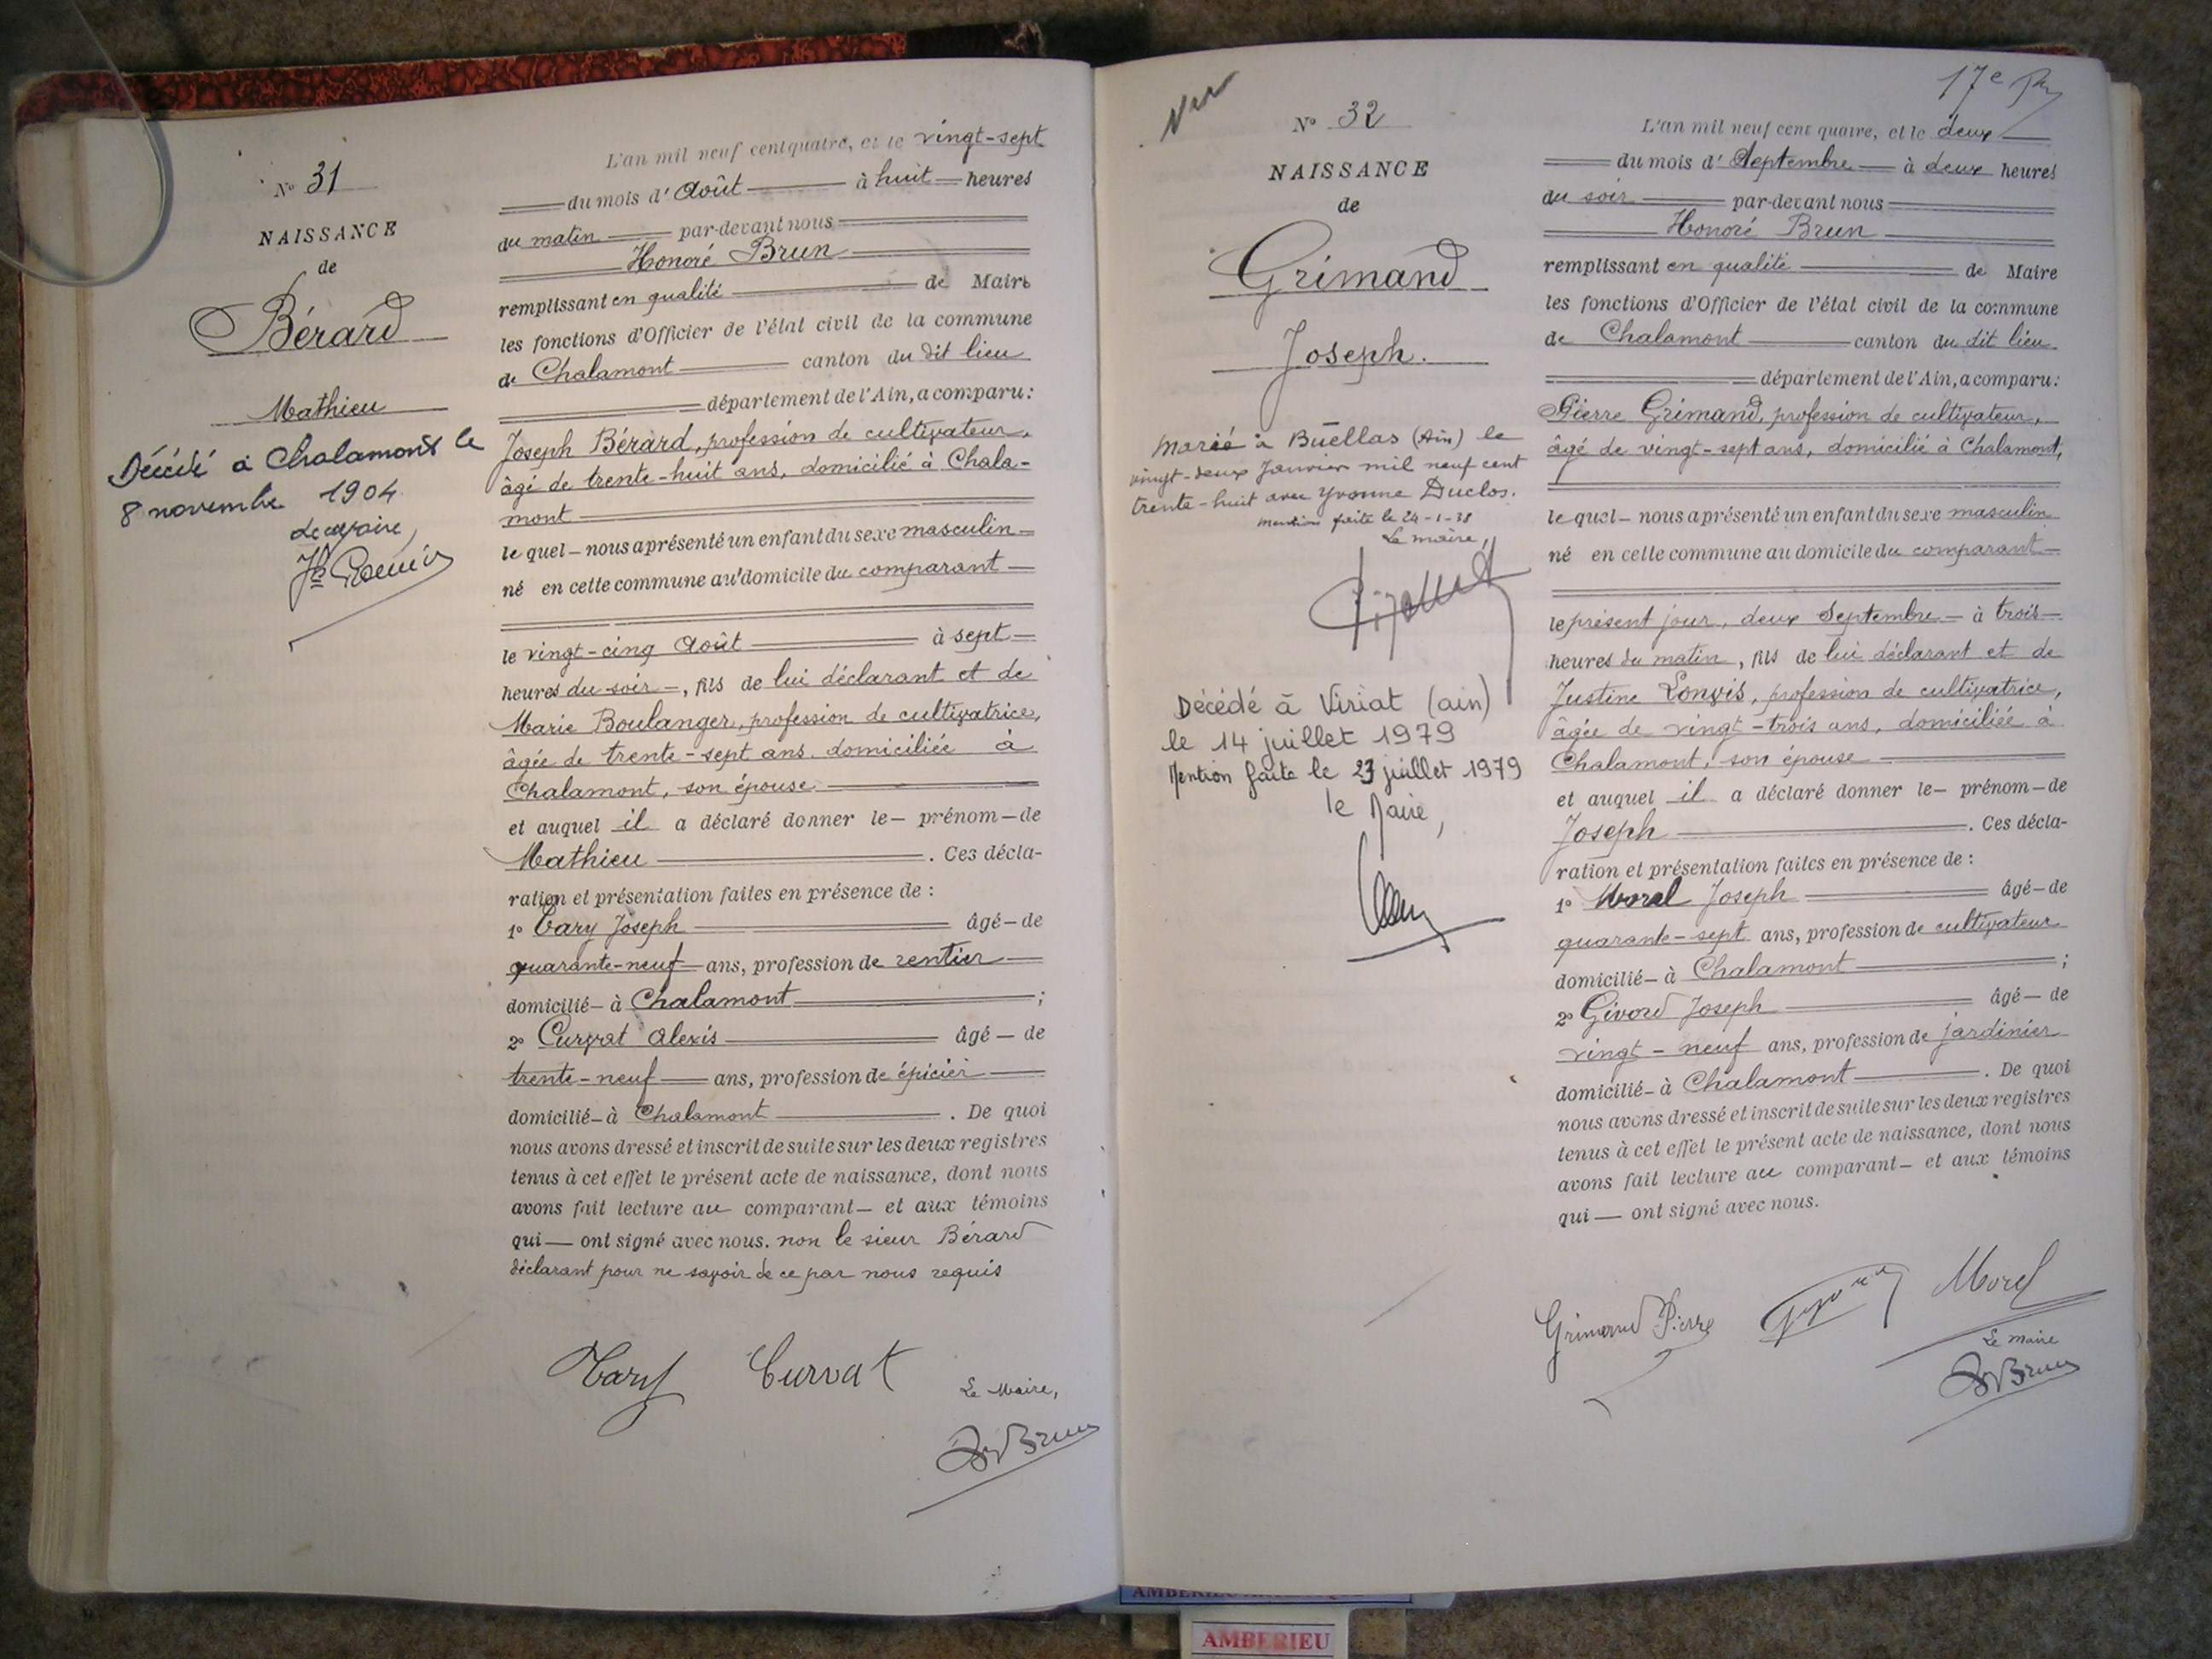 N° 31
NAISSANCE
de
Bérard
Mathieu
Décédé à Chalamont le
8 novembre 1904
Le maire,
L'an mil neuf cent quatre, et le vingt-sept
du mois d' Août à huit heures
du matin par-devant nous
Honoré Brun
remplissant en qualité de Maire
les fonctions d'Officier de l'état civil de la commune
de Chalamont canton du dit lieu
département de l'Ain, a comparu:
Joseph Bérard, profession de cultivateur,
âgé de trente-huit ans, domicilié à Chala-
mont
le quel nous a présenté un enfant du sexe masculin
né en cette commune au domicile du comparant
le vingt-cinq Août à sept
heures du soir, fils de lui déclarant et de
Marie Boulanger, profession de cultivatrice,
âgée de trente-sept ans, domiciliée à
Chalamont, son épouse
et auquel il a déclaré donner le prénom de
Mathieu. Ces décla-
ration et présentation faites en présence de :
1° Tary Joseph âgé de
quarante-neuf ans, profession de rentier
domicilié à Chalamont ;
2° Curvat Alexis âgé de
trente-neuf ans, profession de épicier
domicilié à Chalamont. De quoi
nous avons dressé et inscrit de suite sur les deux registres
tenus à cet effet le présent acte de naissance, dont nous
avons fait lecture au comparant et aux témoins
qui ont signé avec nous. non le sieur Bérard
déclarant pour ne savoir de ce par nous requis
Tary Curvat
Le Maire,
Brun
17e
N° 32
NAISSANCE
de
Grimand
Joseph.
Marié à Buellas (Ain) le
vingt-deux Janvier mil neuf cent
trente-huit avec Yvonne Duclos.
mention faite le 24-1-38
Le maire,
Décédé à Viriat (ain)
le 14 juillet 1979
Mention faite le 23 juillet 1979
le Maire,
L'an mil neuf cent quatre, et le deux
du mois d' Septembre à deux heures
du soir par-devant nous
Honoré Brun
remplissant en qualité de Maire
les fonctions d'Officier de l'état civil de la commune
de Chalamont canton du dit lieu
département de l'Ain, a comparu:
Pierre Grimand, profession de cultivateur,
âgé de vingt-sept ans, domicilié à Chalamont,
le quel nous a présenté un enfant du sexe masculin
né en cette commune au domicile du comparant
le présent jour, deux Septembre à trois
heures du matin, fils de lui déclarant et de
Justine Lonvis, profession de cultivatrice,
âgée de vingt-trois ans, domiciliée à
Chalamont, son épouse
et auquel il a déclaré donner le prénom de
Joseph. Ces décla-
ration et présentation faites en présence de :
1° Morel Joseph âgé de
quarante-sept ans, profession de cultivateur
domicilié à Chalamont ;
2° Givord Joseph âgé de
vingt-neuf ans, profession de jardinier
domicilié à Chalamont. De quoi
nous avons dressé et inscrit de suite sur les deux registres
tenus à cet effet le présent acte de naissance, dont nous
avons fait lecture au comparant et aux témoins
qui ont signé avec nous.
Grimand Pierre Morel
Le maire
Brun
AMBERIEU